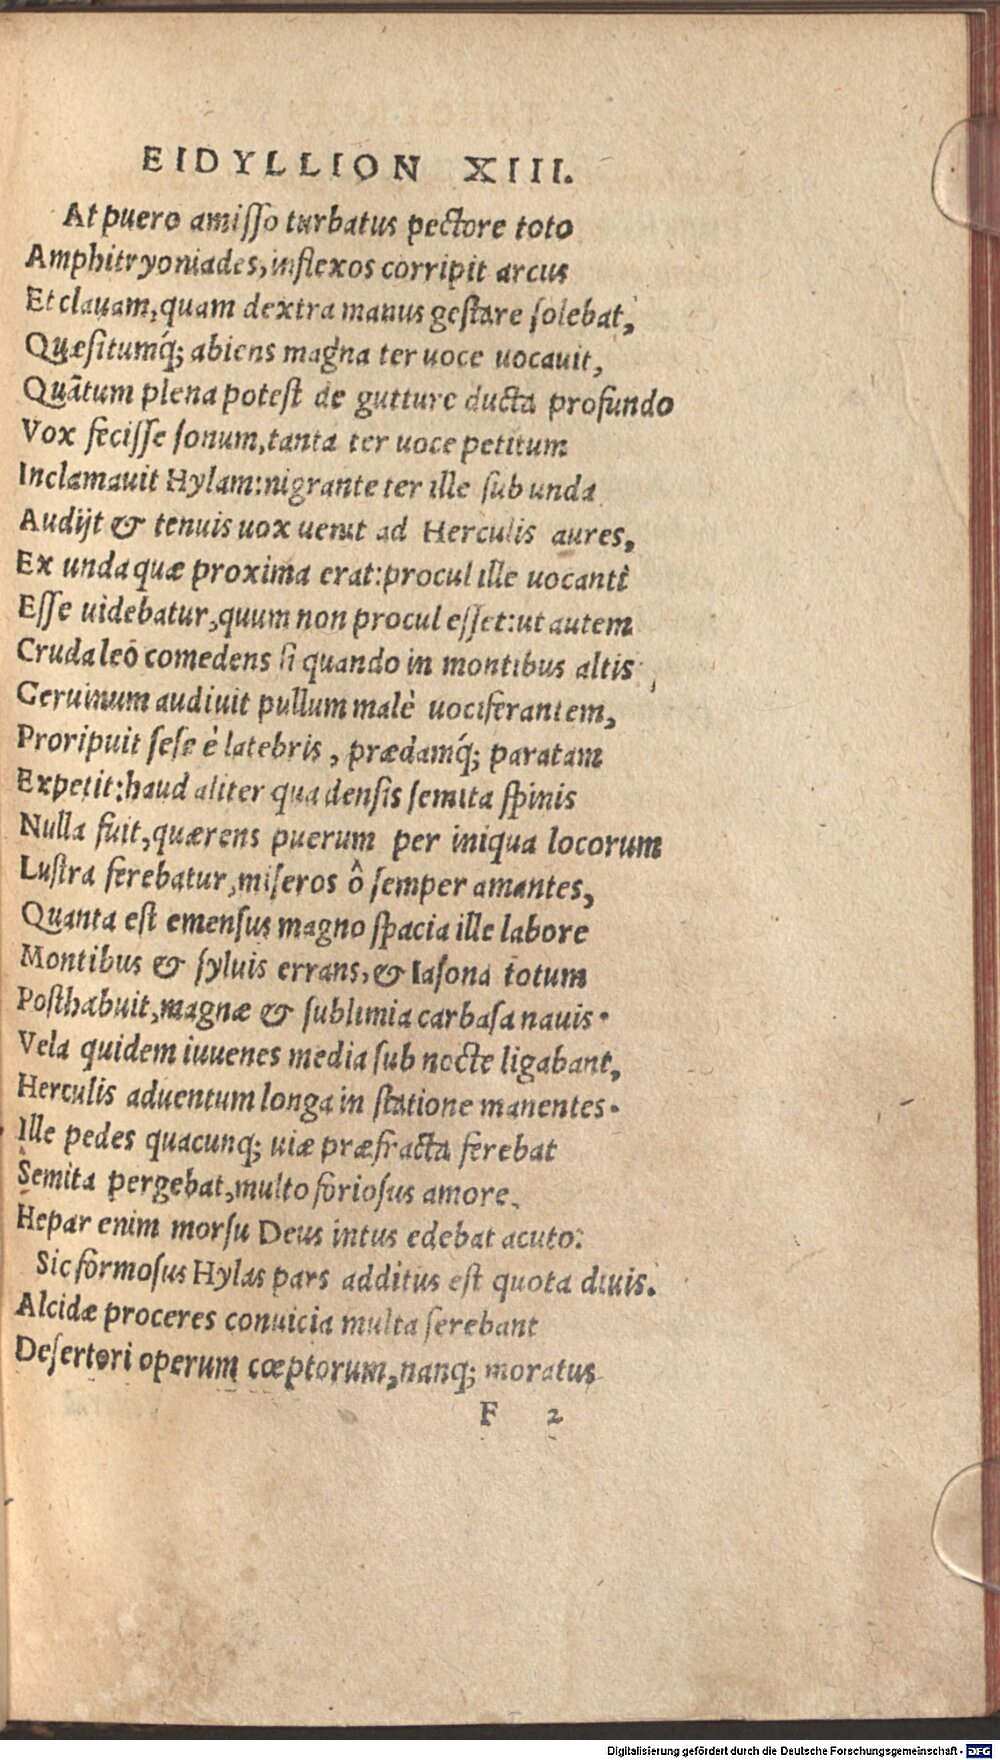 EIDYLLION XIII.
At puero amisſo turbatus pectore toto
Amphitryoniades, inflexos corripit arcus
Et clauam, quam dextra manus geſtare ſolebat,
Quæſitumq́; abiens magna ter uoce uocauit,
Quātum plena poteſt de gutture ducta profundo
Vox feciſſe ſonum, tanta ter uoce petitum
Inclamauit Hylam: nigrante ter ille ſub unda
Audijt & tenuis uox uenit ad Herculis aures,
Ex unda quæ proxima erat: procul ille uocanti
Eſſe uidebatur, quum non procul eſſet: ut autem
Cruda leo comedens ſi quando in montibus altis
Ceruinum audiuit pullum malè uociferantem,
Proripuit ſeſe è latebris, prædamq́; paratam
Expetit: haud aliter qua denſis ſemita ſpinis
Nulla fuit, quærens puerum per iniqua locorum
Luſtra ferebatur, miſeros ô ſemper amantes,
Quanta eſt emenſus magno ſpacia ille labore
Montibus & ſyluis errans, & Iaſona totum
Poſthabuit, magnæ & ſublimia carbaſa nauis.
Vela quidem iuuenes media ſub nocte ligabant,
Herculis aduentum longa in ſtatione manentes.
Ille pedes quacunq; uiæ præfracta ferebat
Semita pergebat, multo forioſus amore.
Hepar enim morſu Deus intus edebat acuto:
Sic formoſus Hylas pars additus eſt quota diuis.
Alcidæ proceres conuicia multa ſerebant
Deſertori operum cœptorum, nanq; moratus
F 2
Digitalisierung gefördert durch die Deutsche Forschungsgemeinschaft - DFG